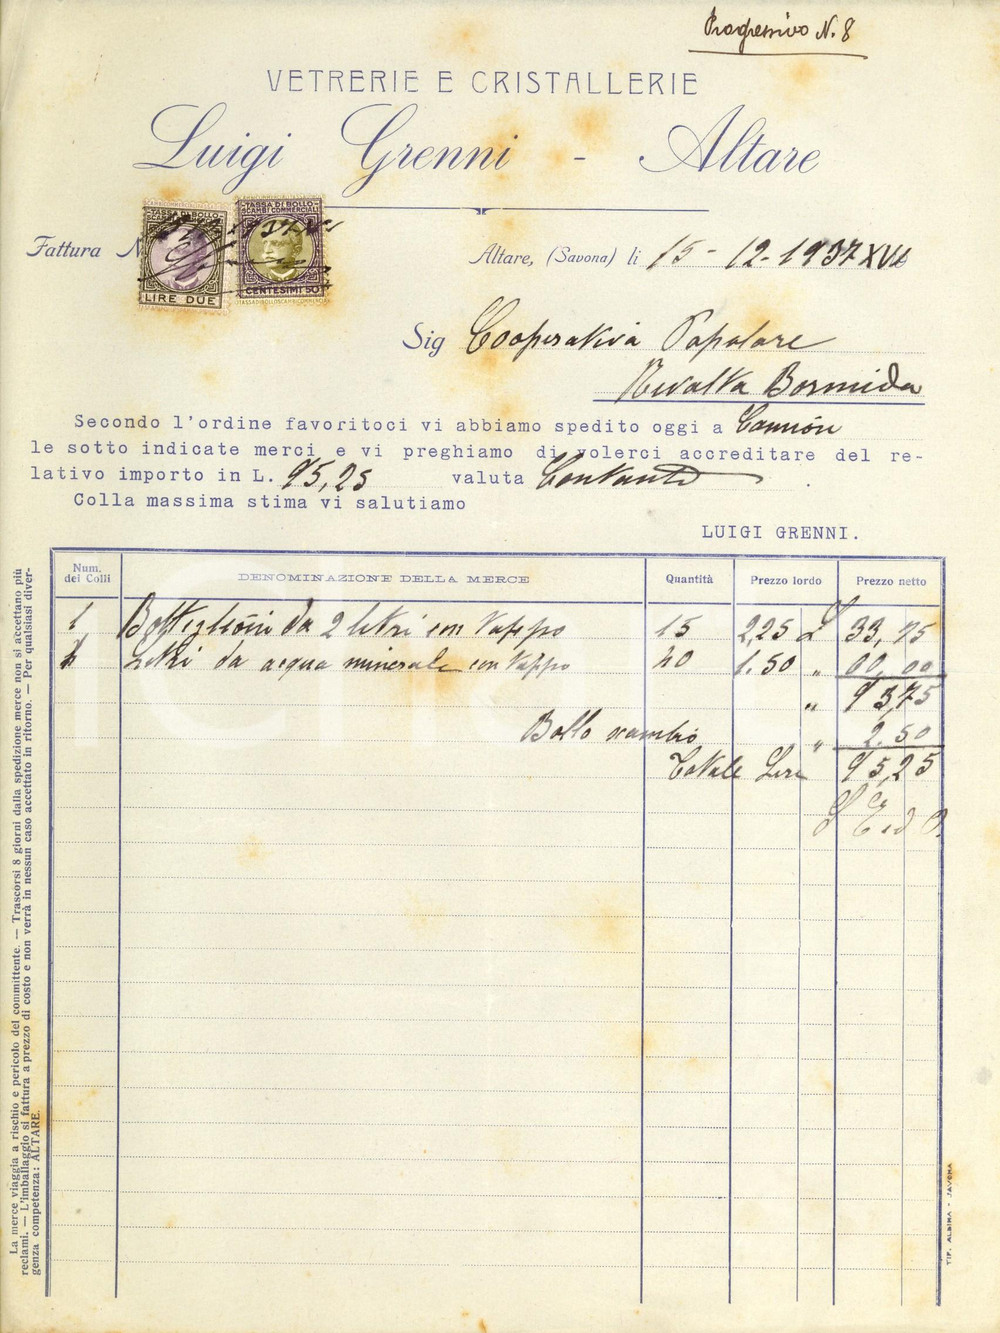 Progressivo N. 8
VETRERIE E CRISTALLERIE
Luigi Grenni - Altare
TASSA DI BOLLO
SCAMBI COMMERCIALI
LIRE DUE
TASSA DI BOLLO
SCAMBI COMMERCIALI
CENTESIMI 50
TASSA DI BOLLO SCAMBI COMMERCIALI
Fattura N
Altare, (Savona) li 15-12-1937 XVI
Sig Cooperativa Popolare
Rivalta Bormida
Secondo l'ordine favoritoci vi abbiamo spedito oggi a Camion
le sotto indicate merci e vi preghiamo di volerci accreditare del re-
lativo importo in L. 95,25 valuta Contanti
Colla massima stima vi salutiamo
LUIGI GRENNI.
Num. dei Colli DENOMINAZIONE DELLA MERCE Quantità Prezzo lordo Prezzo netto
1 Bottiglioni da 2 litri con tappo 15 2,25 L 33,75
Litri da acqua minerale con tappo 40 1.50 " 00,00
" 93,75
Bollo scambio " 2.50
Totale Lire 95,25
La merce viaggia a rischio e pericolo del committente. — Trascorsi 8 giorni dalla spedizione merce non si accettano più
reclami. — L'imballaggio si fattura a prezzo di costo e non verrà in nessun caso accettato in ritorno. — Per qualsiasi diver-
genza competenza: ALTARE.
TIP. ALBINA - SAVONA